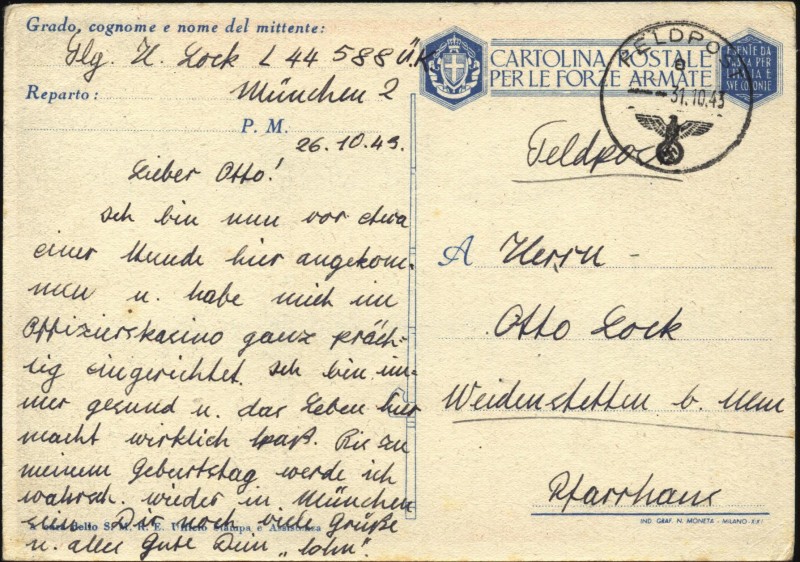 Grado, cognome e nome del mittente:
Flg. H. Lock L 44 588 Ü.K.
Reparto: München 2
P. M.
26.10.43.
Lieber Otto!
Ich bin nun vor etwa
einer Stunde hier angekom-
men u. habe mich im
Offizierskasino ganz präch-
tig eingerichtet. Ich bin im-
mer gesund u. das Leben hier
macht wirklich Spaß. Bis zu
meinem Geburtstag werde ich
wahrsch. wieder in München
sein. Dir noch viele Grüße
u. alles Gute Dein „
S. M. R. E. Ufficio Stampa e Assistenza
CARTOLINA POSTALE
PER LE FORZE ARMATE
ESENTE DA
TASSA PER
L'ITALIA E
SVE COLONIE
FELDPOST
31.10.43
Feldpost
A Herrn
Otto Lock
Weidenstetten b. Ulm
Pfarrhaus
IND. GRAF. N. MONETA - MILANO